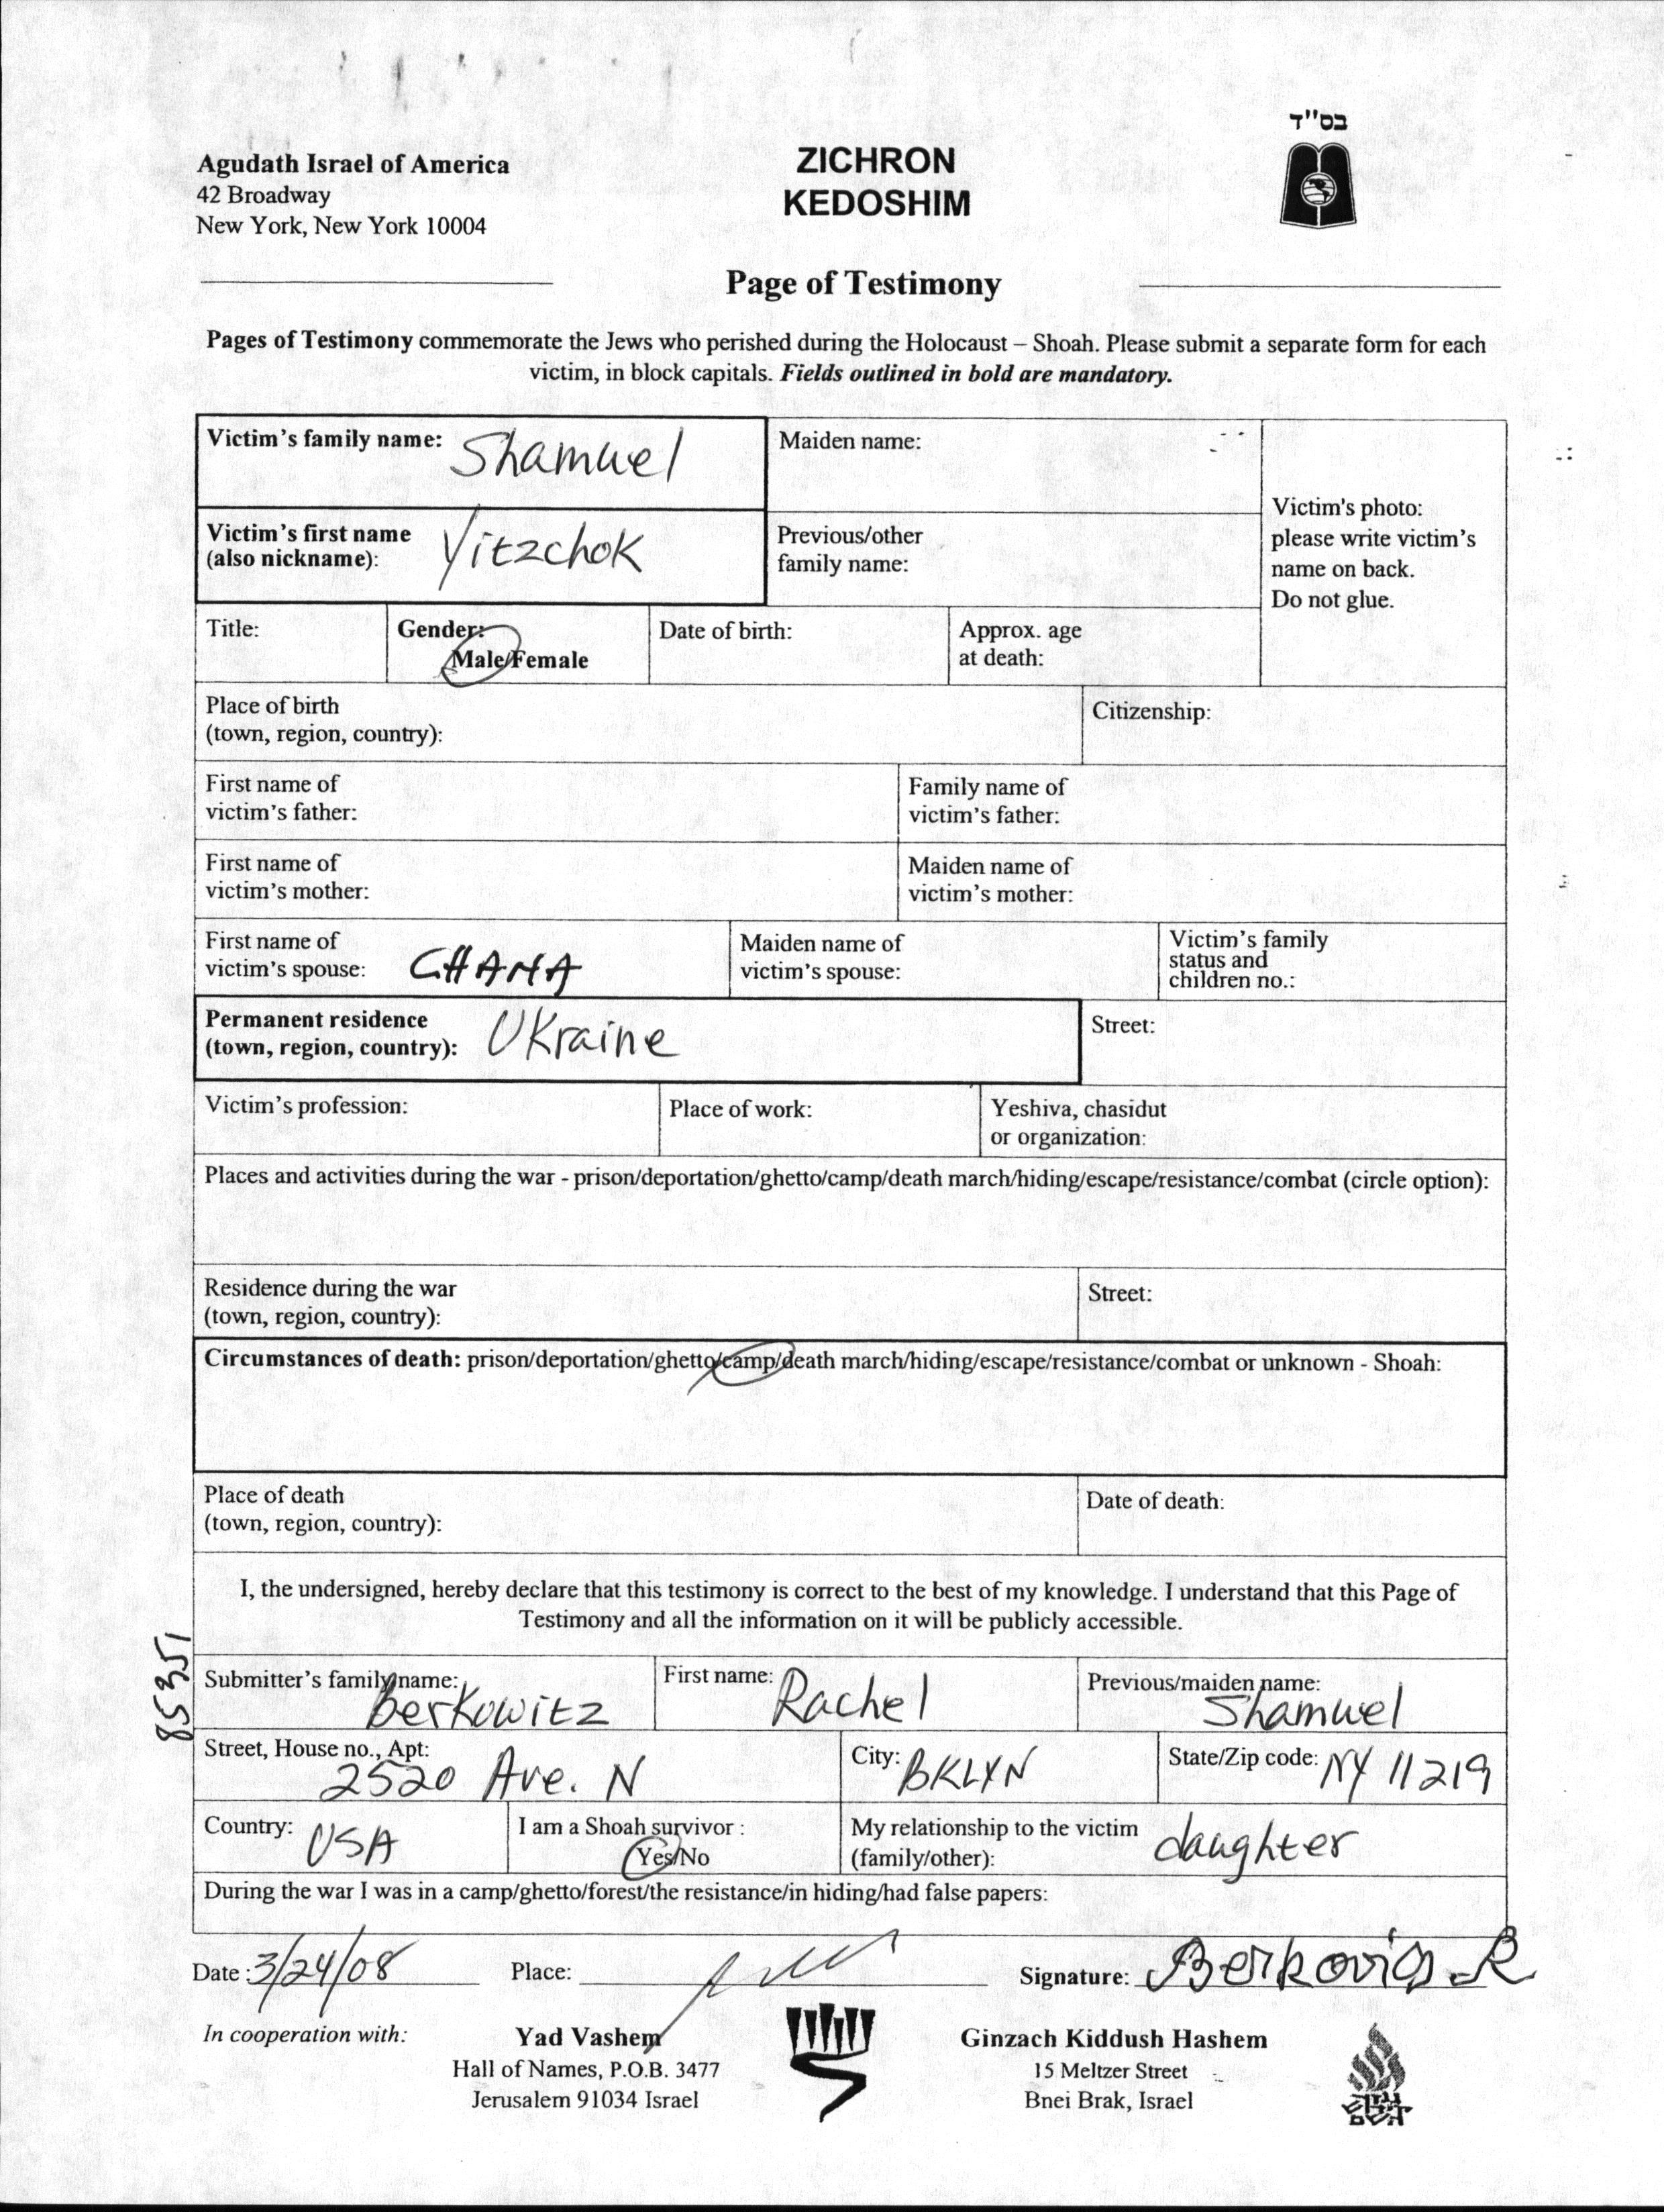 בס"ד
Agudath Israel of America
42 Broadway
New York, New York 10004
ZICHRON
KEDOSHIM
Page of Testimony
Pages of Testimony commemorate the Jews who perished during the Holocaust – Shoah. Please submit a separate form for each
victim, in block capitals. Fields outlined in bold are mandatory.
Victim's family name: Shamuel
Maiden name:
Victim's photo:
please write victim's
name on back.
Do not glue.
Victim's first name
(also nickname): Yitzchok
Previous/other
family name:
Title:
Gender:
Male/Female
Date of birth:
Approx. age
at death:
Place of birth
(town, region, country):
Citizenship:
First name of
victim's father:
Family name of
victim's father:
First name of
victim's mother:
Maiden name of
victim's mother:
First name of
victim's spouse: CHANA
Maiden name of
victim's spouse:
Victim's family
status and
children no.:
Permanent residence
(town, region, country): Ukraine
Street:
Victim's profession:
Place of work:
Yeshiva, chasidut
or organization:
Places and activities during the war - prison/deportation/ghetto/camp/death march/hiding/escape/resistance/combat (circle option):
Residence during the war
(town, region, country):
Street:
Circumstances of death: prison/deportation/ghetto/camp/death march/hiding/escape/resistance/combat or unknown - Shoah:
Place of death
(town, region, country):
Date of death:
I, the undersigned, hereby declare that this testimony is correct to the best of my knowledge. I understand that this Page of
Testimony and all the information on it will be publicly accessible.
85351
Submitter's family name: Berkowitz
First name: Rachel
Previous/maiden name: Shamuel
Street, House no., Apt: 2520 Ave. N
City: BKLYN
State/Zip code: NY 11219
Country: USA
I am a Shoah survivor :
Yes/No
My relationship to the victim
(family/other): daughter
During the war I was in a camp/ghetto/forest/the resistance/in hiding/had false papers:
Date : 3/24/08
Place:
Signature: Berkovics R
In cooperation with:
Yad Vashem
Hall of Names, P.O.B. 3477
Jerusalem 91034 Israel
Ginzach Kiddush Hashem
15 Meltzer Street
Bnei Brak, Israel